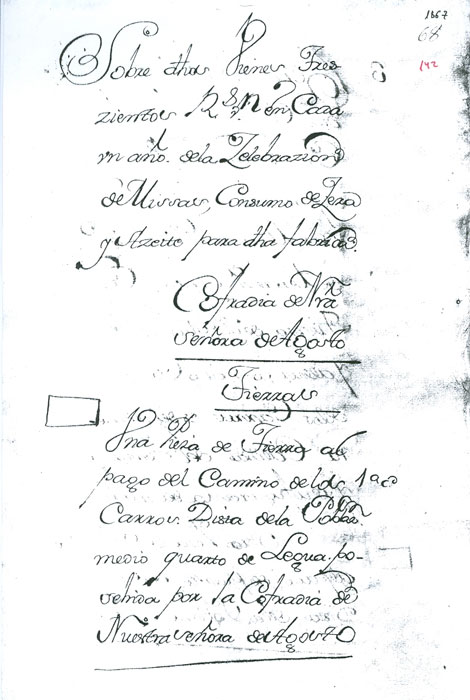 1867
68
142
Sobre dhos Vienes Tres
zientos Rs. Vn en, Cada
vn año. dela Zelebrazion
de Missas, Consumo de Zera
y Azeite para dha fabrica.
Cofradia de Nrâ
señora de Agosto
Tierras
Vna Pieza de Tierra al
pago del Camino de los
Carros. Dista dela Poblan.
medio quarto de Legua. po-
sehida por la Cofradia de
Nuestra señora de Agosto